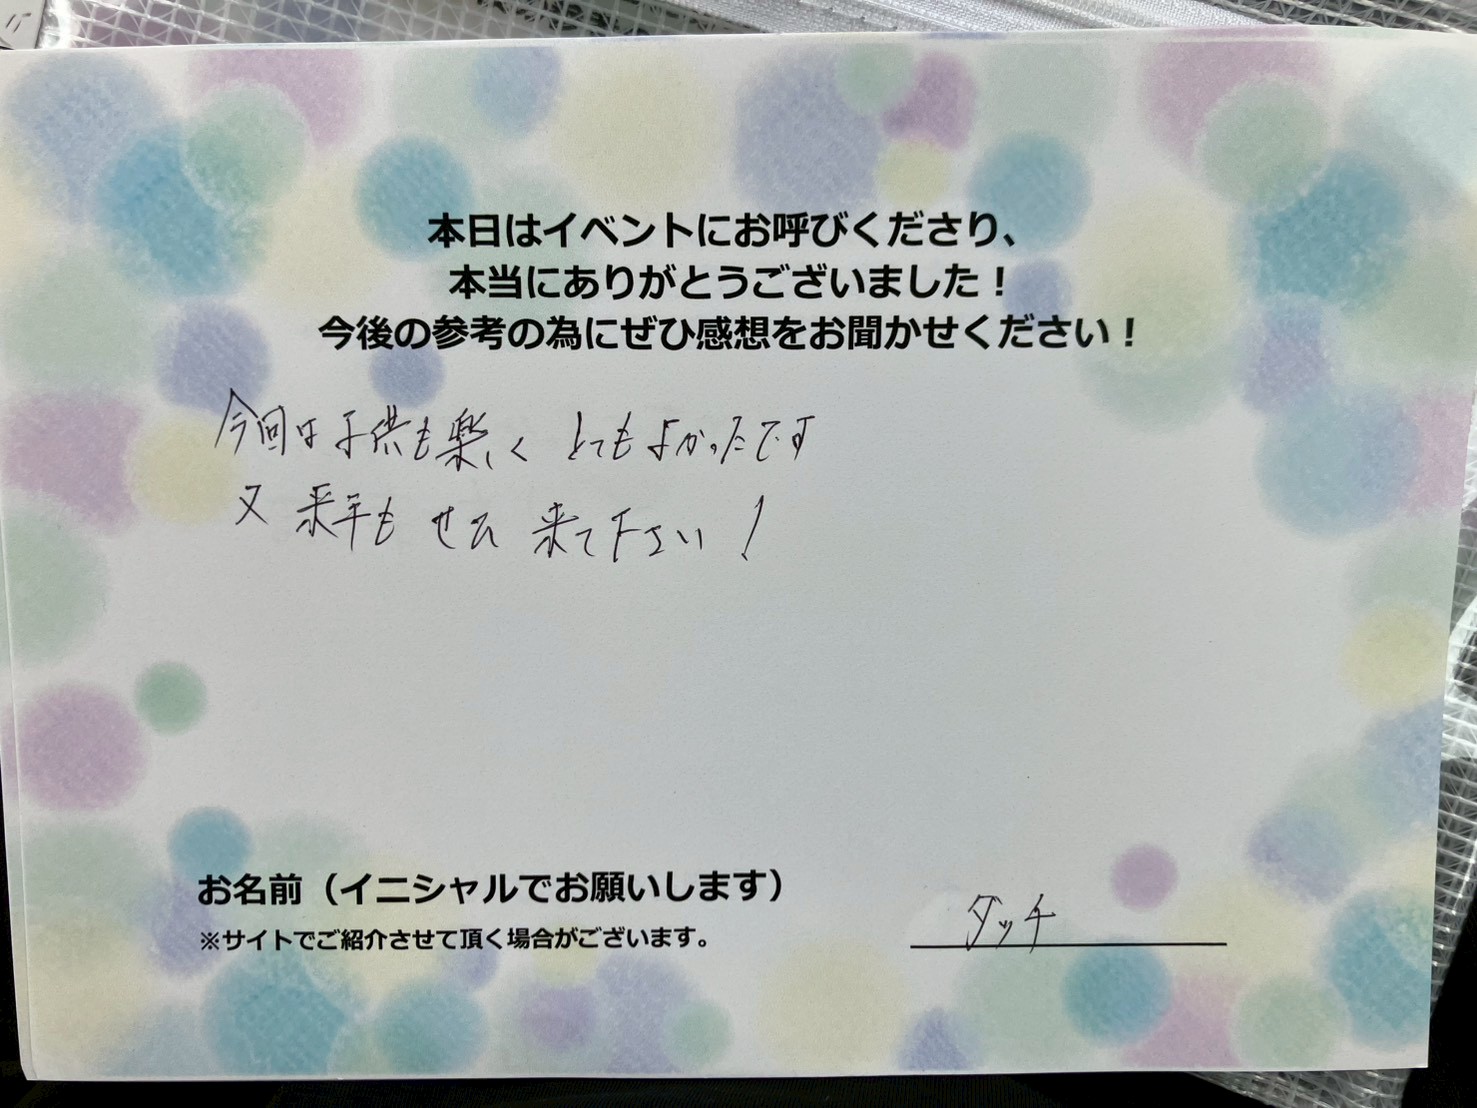 本日はイベントにお呼びくださり、
本当にありがとうございました！
今後の参考の為にぜひ感想をお聞かせください！
今回は子供も楽しく とてもよかったです
又 来年も ぜひ 来て下さい！
お名前（イニシャルでお願いします）
※サイトでご紹介させて頂く場合がございます。
ダッチ